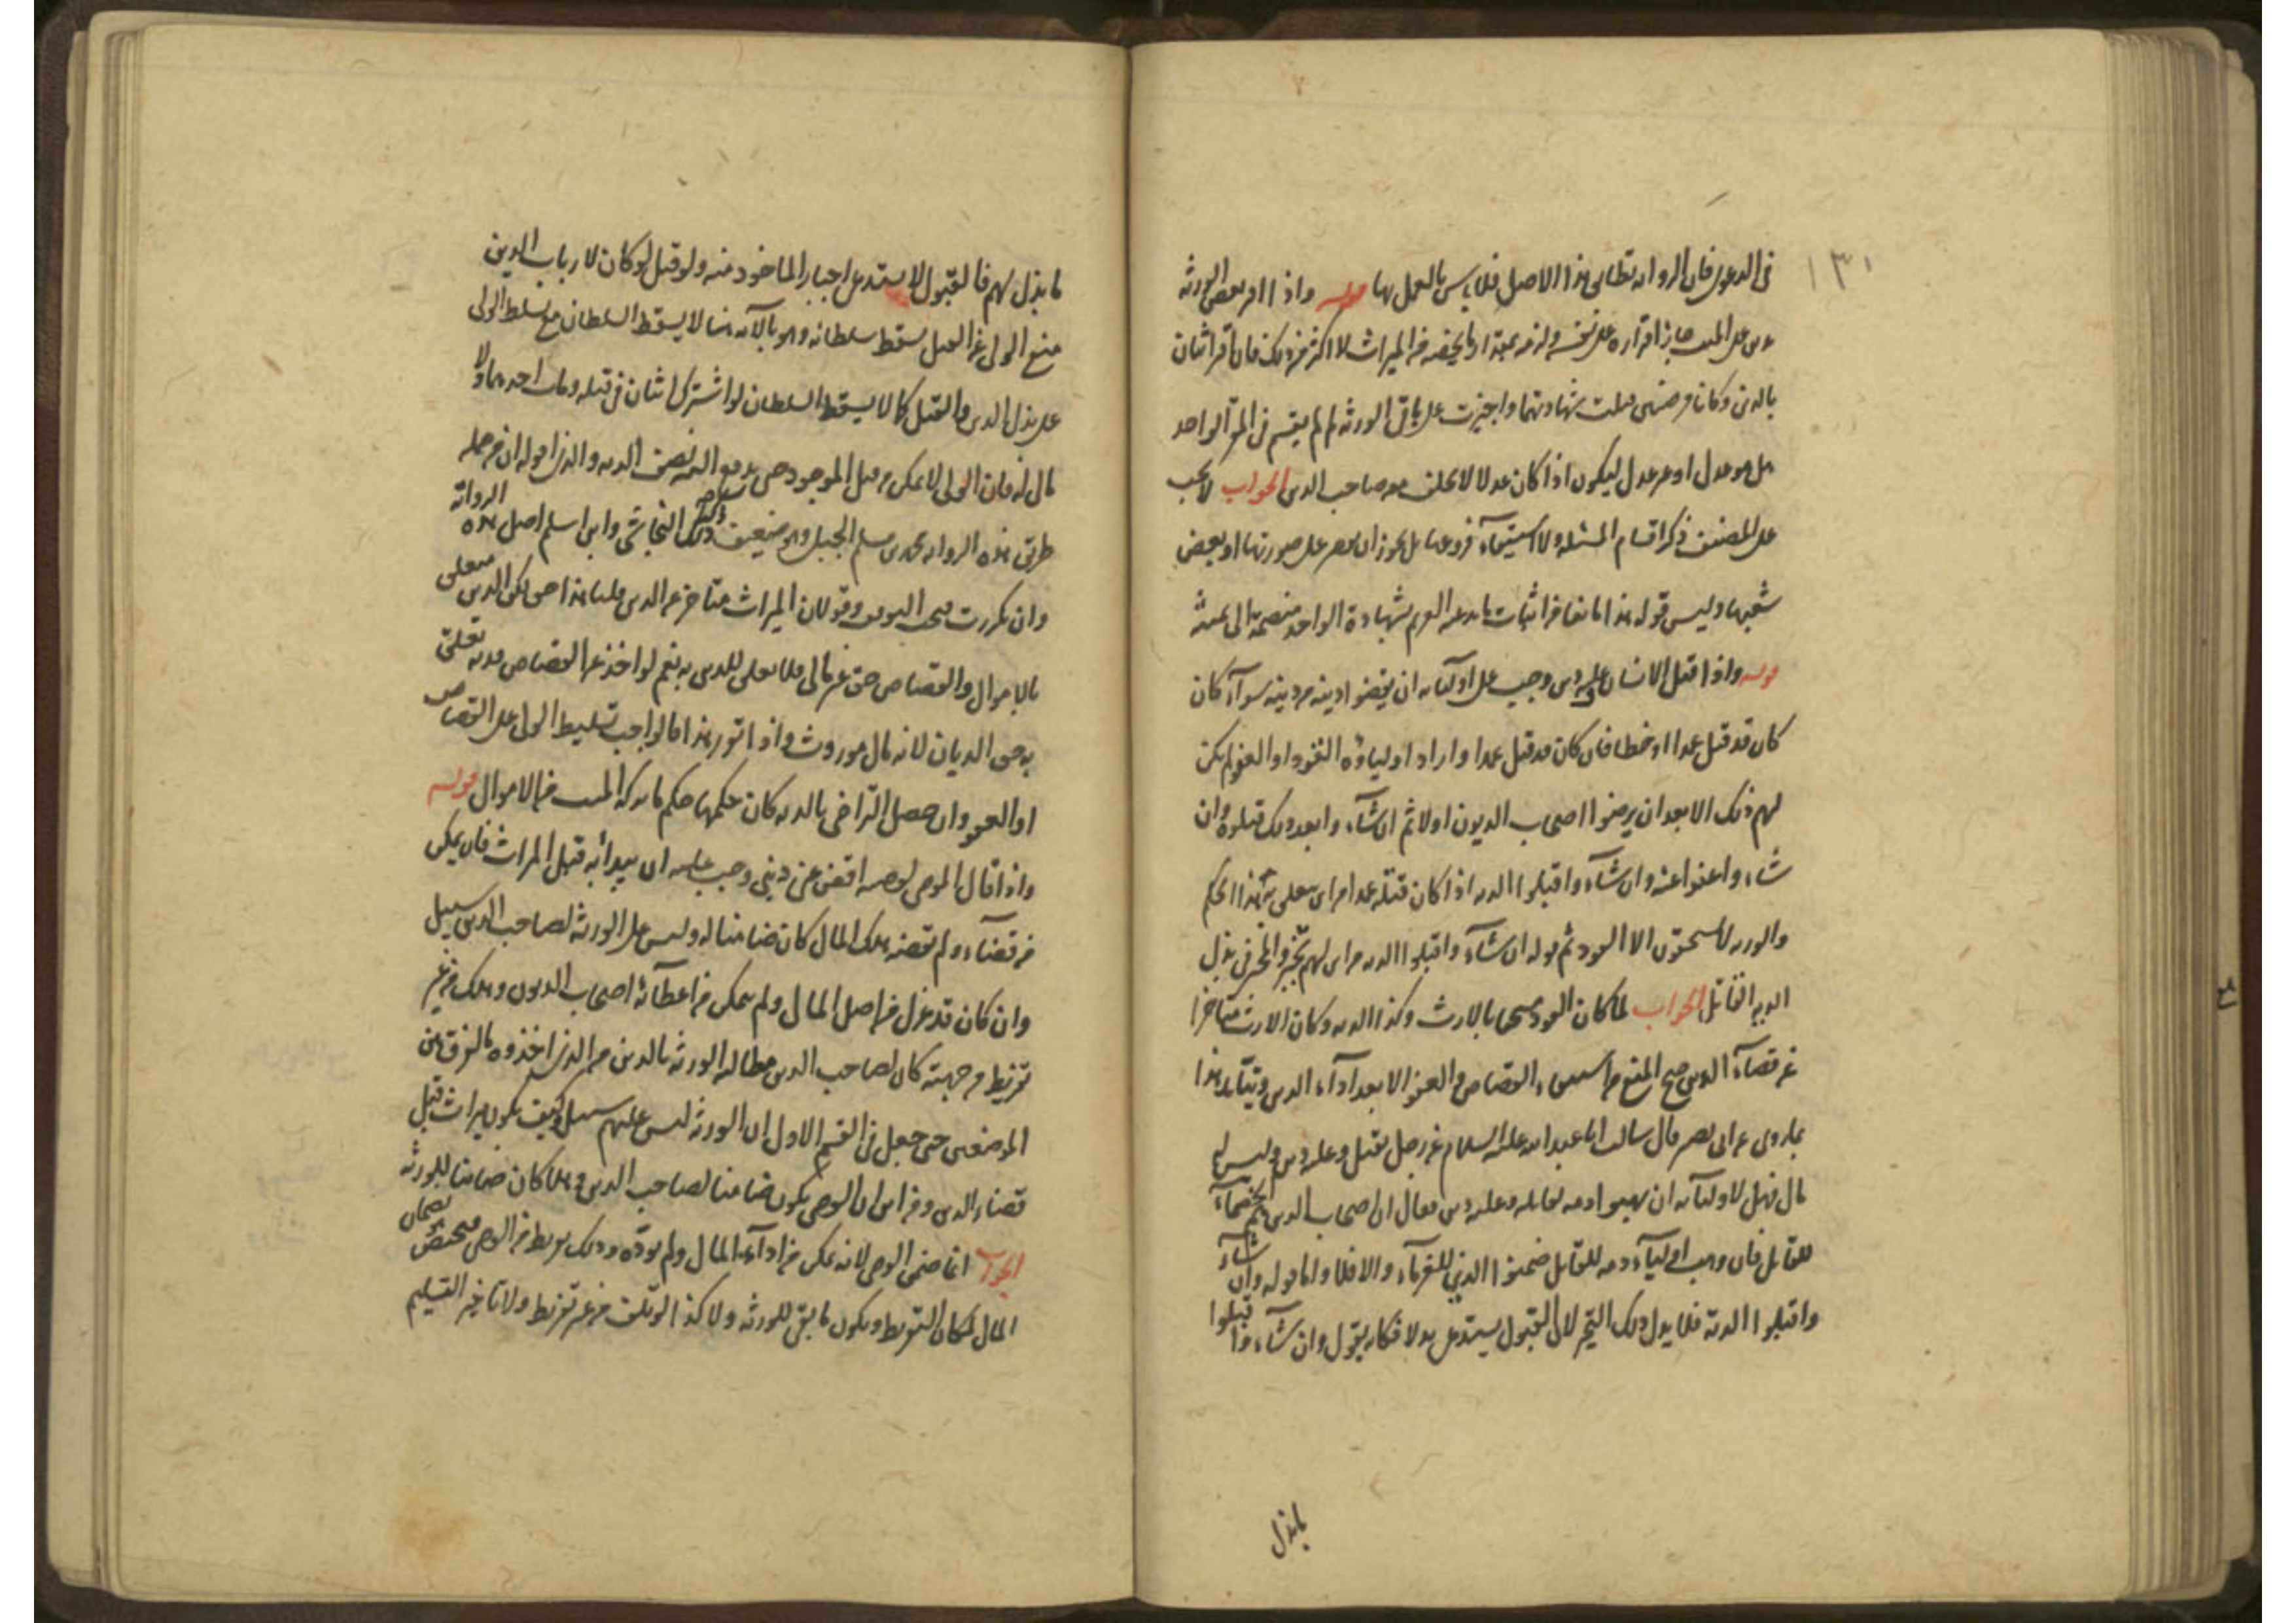 ١٣١
في الدعوى فان الرواية تطابق هذا الاصل فلا بأس بالعمل بها قوله واذا اقر بعض الورثة
بدين على الميت جاز اقراره على نفسه ولزمه بمقدار ما يخصه من الميراث لا اكثر من ذلك فان اقر اثنان
بالدين وكانا مرضيين قبلت شهادتهما واجيزت على باقي الورثة لم لم يقسم في المقر الواحد
هل هو عدل او غير عدل ليكون اذا كان عدلا لا يحلف معه صاحب الدين الجواب لا يجب
على المصنف ذكر اقسام المسئلة ولا استيفاء فروعها بل يجوز ان يقتصر على صورتها او بعض
شعبها وليس قوله هذا مانعا من اثبات ما يدعيه الغريم بشهادة الواحد منضمة الى يمينه
قوله واذا قتل الانسان وعليه دين وجب على اوليائه ان يقضوا دينه من ديته سوآء كان
كان قد قتل عمدا او خطا فان كان قد قتل عمدا واراد اولياؤه القود او العفو لم يكن
لهم ذلك الا بعد ان يرضوا اصحاب الديون اولا ثم ان شآءوا بعد ذلك قتلوه وان
شاءوا عفوا عنه وان شآءوا قبلوا الدية اذا كان قتله عمدا من اين تعلق به هذا الحكم
والورثة لا يستحقون الا القود ثم قوله ان شآءوا قبلوا الدية من اين لهم تخير والمخير في بذل
الدية القاتل الجواب لما كان القود مستحقا بالارث وكذا الدية وكان الارث متاخرا
عن قضآء الدين صح المنع من استيفاء القصاص والعفو الا بعد ادآء الدين ويتأيد هذا
بما روى عن ابى بصير قال سالت ابا عبد الله عليه السلام عن رجل يقتل وعليه دين وليس له
مال فهل لاوليآئه ان يهبوا دمه لقاتله وعليه دين فقال ان اصحاب الدين هم الخصمآء
للقاتل فان وهب اوليآءه دمه للقاتل ضمنوا الدين للغرمآء والا فلا واما قوله وان شآء
واقبلوا الدية فلا يدل ذلك التخير لان القبول يستدعي بدلا فكانه يقول وان شآءوا قبلوا
ما بذل
ما بذل لهم فالقبول لا يستدعي اجبار الماخوذ منه ولو قيل لو كان لارباب الدين
منع الولي عن القتل يسقط سلطانه وهو بالآية هنا لا يسقط السلطان مع تسلط الولي
على بذل الدين والقتل كما لا يسقط السلطان لو اشترك اثنان في قتله ومات احدهما ولا
مال له فان الولي لا يمكن من قتل الموجود حتى يدفع اليه نصف الدية والذي اقوله ان في جملة
طريق هذه الرواية محمد بن سلم الجبلي وهو ضعيف ذكر ذلك النجاشي وابن اسلم اصل هذه الرواية
وان تكررت في الكتب وقولان الميراث متاخر عن الدين قلنا هذا حق لكن الدين متعلق
بالاموال والقصاص حق غير مالي فلا تعلق للدين به نعم لو اخذ عن القصاص دية تعلق
به حق الديان لانه مال موروث واذا تقرر هذا فالواجب تسليط الولي على القصاص
او العفو وان حصل التراضي بالدية كان حكمها حكم ما تركه الميت من الاموال قوله
واذا قال الموصي لوصيه اقض عني ديني وجب عليه ان يبدأ به قبل الميراث فان تمكن
من قضآءه ولم يقضه وهلك المال كان ضامنا له وليس على الورثة لصاحب الدين سبيل
وان كان قد عزل من اصل المال ولم يتمكن من اعطآئه اصحاب الديون وهلك من غير
تفريط من جهته كان لصاحب الدين مطالبة الورثة بالدين من الذي اخذوه ما الفرق بين
الموضعين حتى جعل في القسم الاول ان الورثة ليس عليهم سبيل وكيف يكون ميراث قبل
قضاء الدين ومن اين ان الوصي يكون ضامنا لصاحب الدين وهلا كان ضامنا للورثة
الجواب انما ضمن الوصي لانه تمكن من ادآء المال ولم يؤده وذلك تفريط من الوصي فيختص بضمان
المال لمكان التفريط ويكون ما بقي للورثة ولا كذا لو تلف من غير تفريط ولا تاخير التسليم